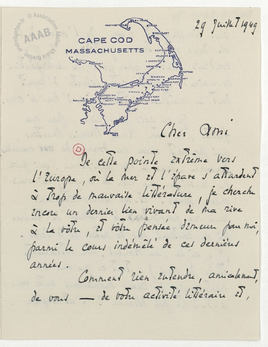 29 Juillet 1949
AAAB
CAPE COD
MASSACHUSETTS
Cher Ami
De cette pointe extrême vers
l'Europe, où la mer et l'épave s'attardent
à trop de mauvaise littérature, je cherche
encore un dernier lien vivant de ma rive
à la vôtre, et votre pensée demeure pour moi,
parmi le cours indémêlé de ces dernières
années.
Comment rien entendre, amicalement,
de vous — de votre activité littéraire et,